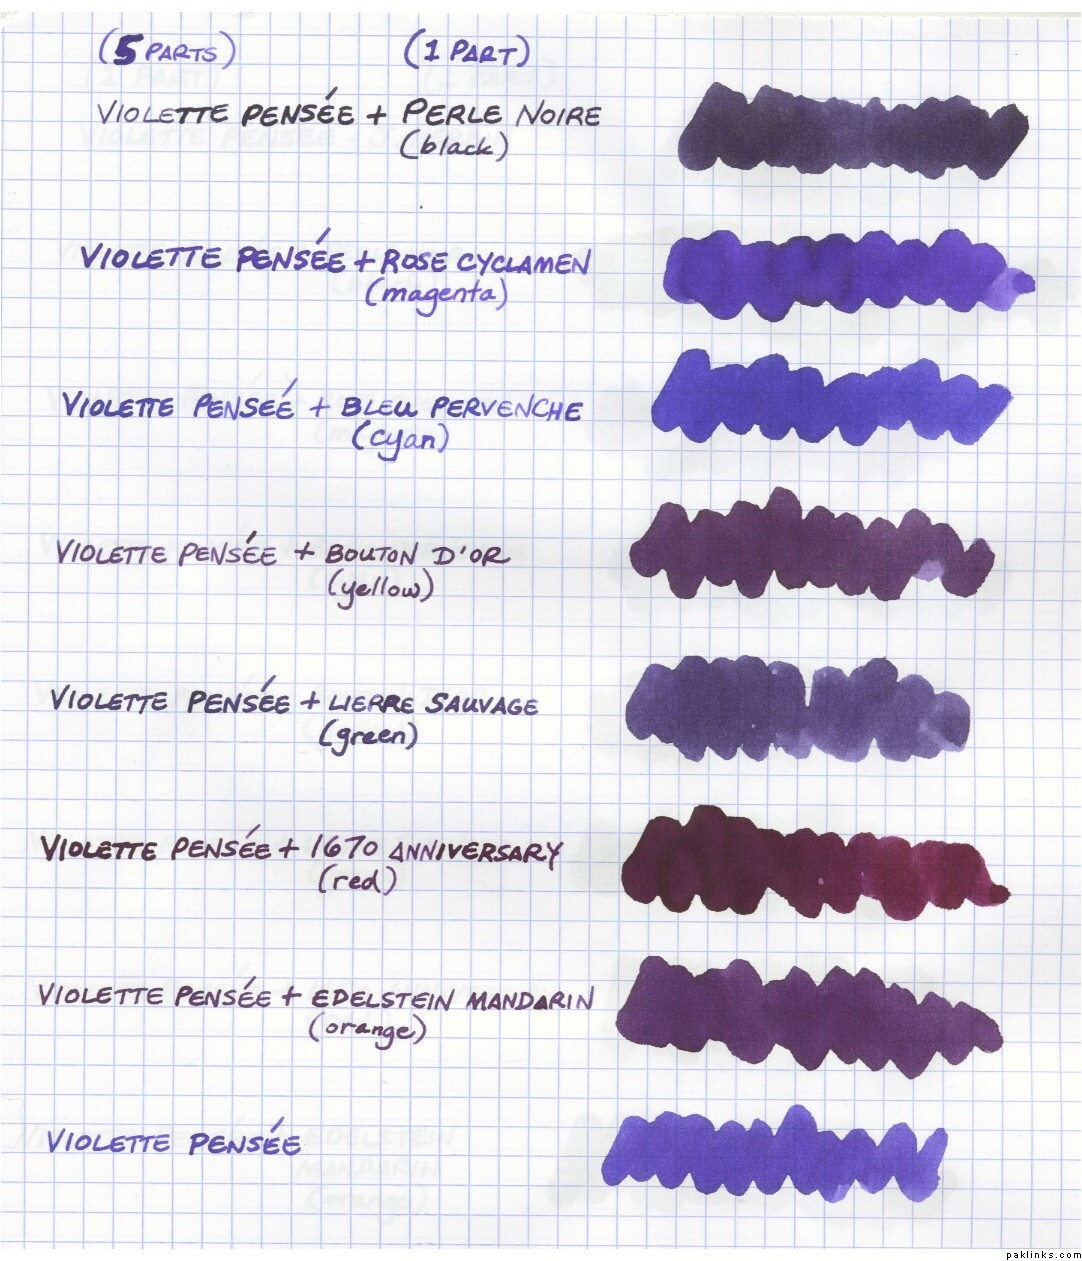 (5 PARTS) (1 PART)
VIOLETTE PENSÉE + PERLE NOIRE
(black)
VIOLETTE PENSÉE + ROSE CYCLAMEN
(magenta)
VIOLETTE PENSEÉ + BLEU PERVENCHE
(cyan)
VIOLETTE PENSÉE + BOUTON D'OR
(yellow)
VIOLETTE PENSÉE + LIERRE SAUVAGE
(green)
VIOLETTE PENSÉE + 1670 ANNIVERSARY
(red)
VIOLETTE PENSÉE + EDELSTEIN MANDARIN
(orange)
VIOLETTE PENSÉE
EDELSTEIN
MANDARIN
(orange)
paklinks.com